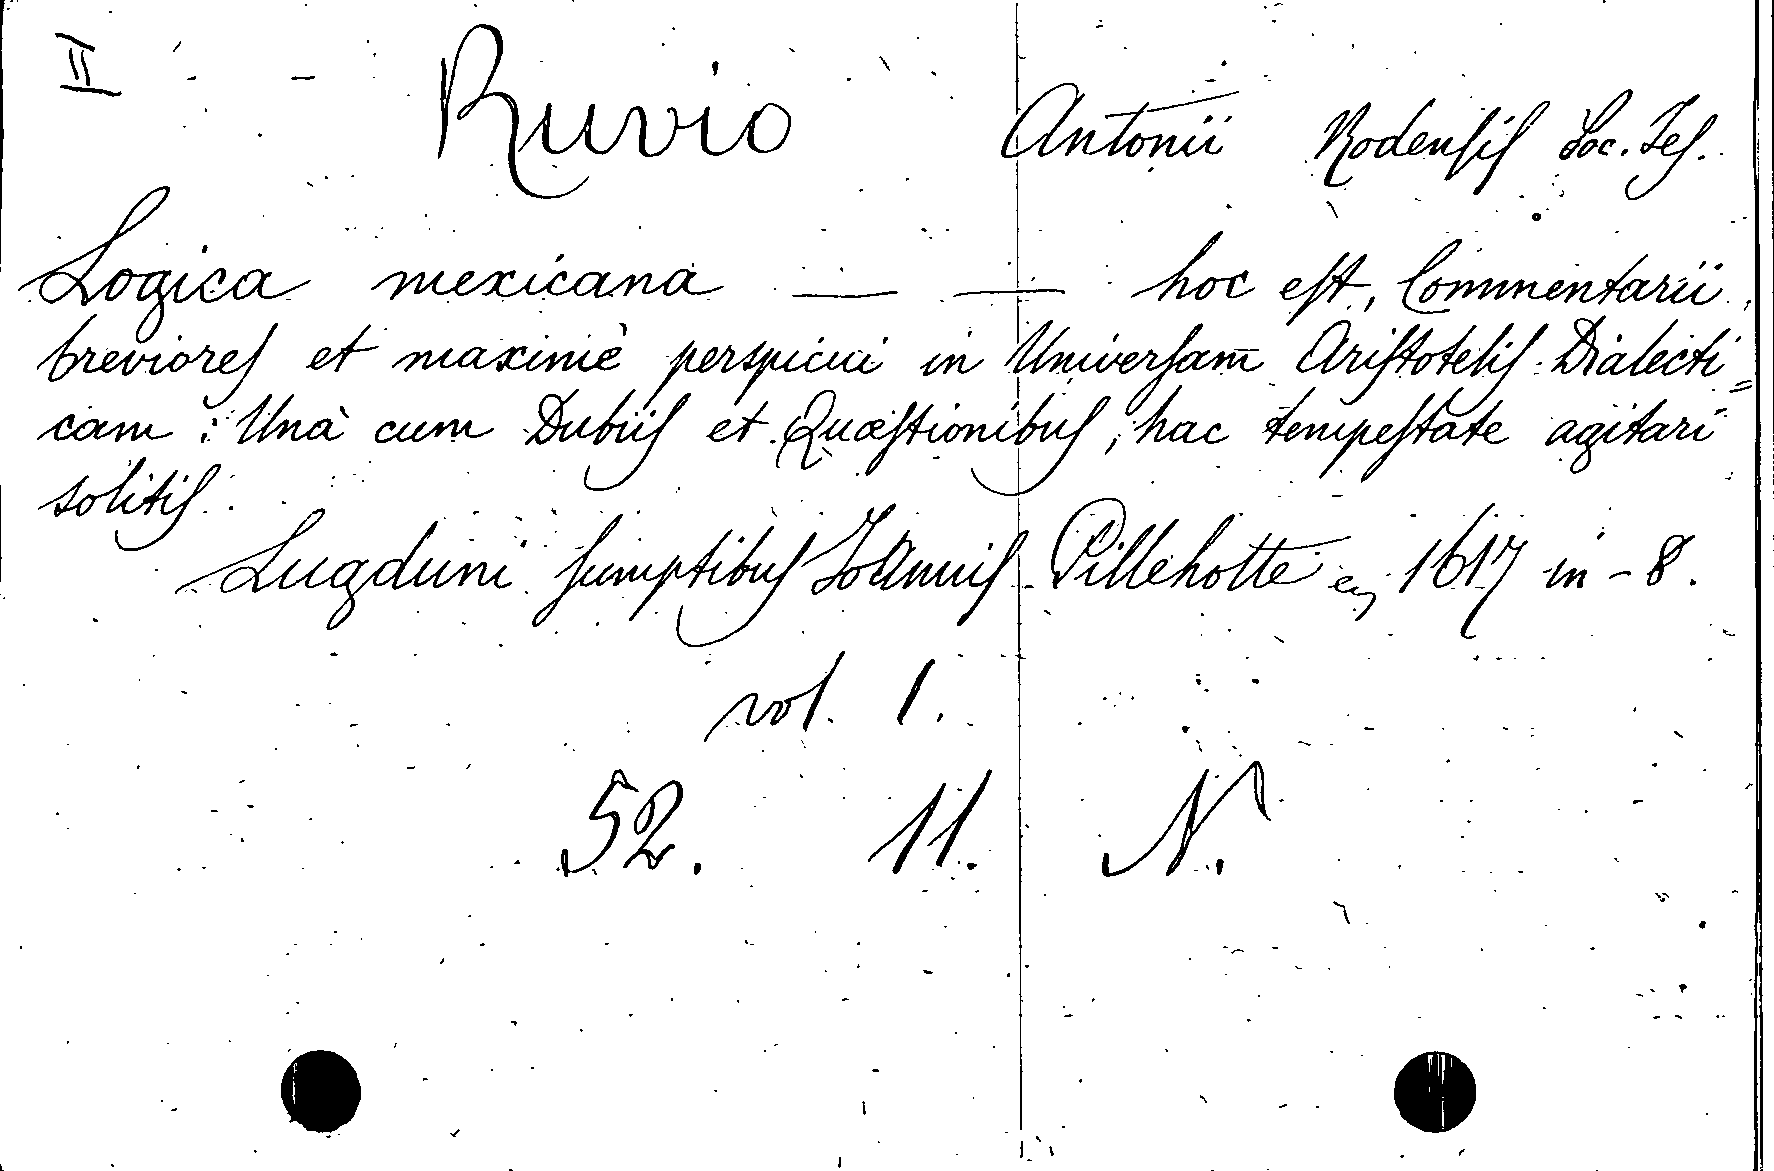 II Ruvio Antonii Rodensis Soc. Jes.
Logica mexicana — — hoc est, Commentarii
breviores et maximè perspicui in Universam Aristotelis Dialecti=
cam : Unà cum Dubiis et Quæstionibus, hac tempestate agitari
solitis.
Lugduni sumptibus Joannis Pillehotte 1617 in-8.
vol. 1.
52. 11. N.